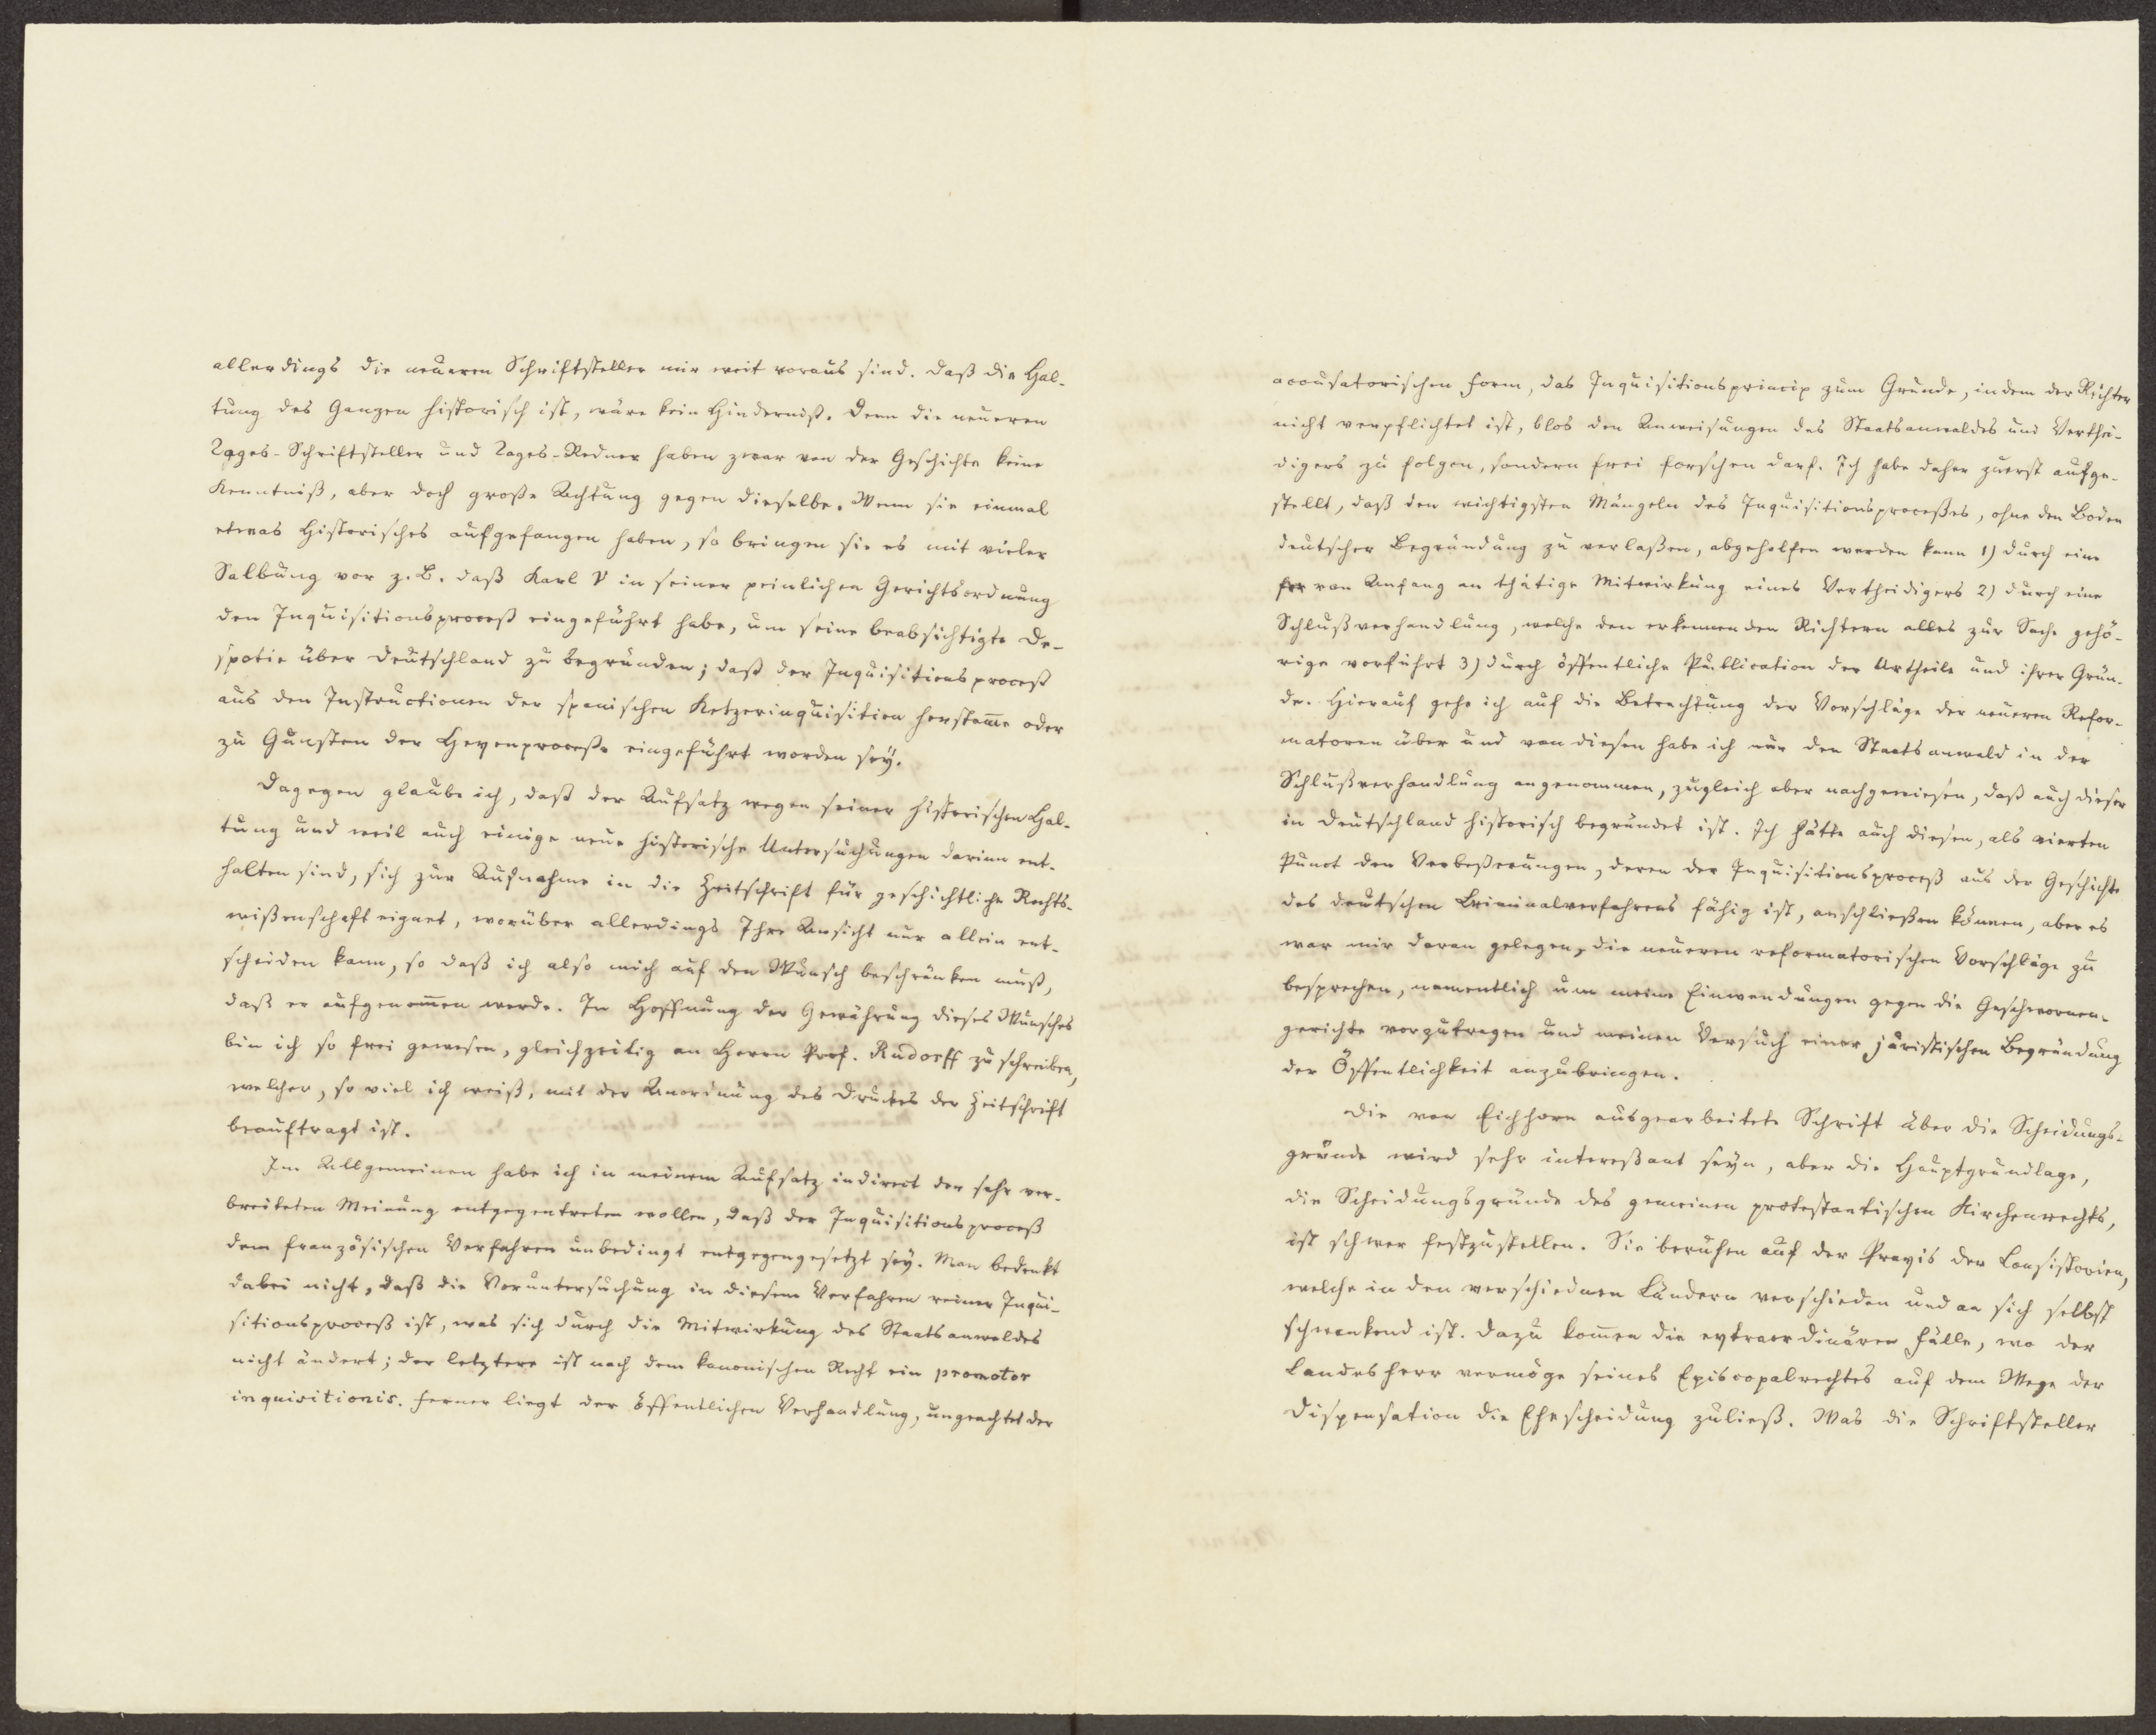 allerdings die neueren Schriftsteller mir weit voraus sind. Daß die Hal-
tung des Ganzen historisch ist, wäre kein Hinderniß. Denn die neueren
Tages-Schriftsteller und Tages-Redner haben zwar von der Geschichte keine
Kenntniß, aber doch große Achtung gegen dieselbe. Wenn sie einmal
etwas Historisches aufgefangen haben, so bringen sie es mit vieler
Salbung vor z. B. daß Karl V in seiner peinlichen Gerichtsordnung
den Inquisitionsproceß eingeführt habe, um seine beabsichtigte De-
spotie über Deutschland zu begründen; daß der Inquisitionsproceß
aus den Instructionen der spanischen Ketzerinquisition herstam̄e oder
zu Gunsten der Hexenproceße eingeführt worden sey.
Dagegen glaube ich, daß der Aufsatz wegen seiner historischen Hal-
tung und weil auch einige neue historische Untersuchungen darinn ent-
halten sind, sich zur Aufnahme in die Zeitschrift für geschichtliche Rechts-
wißenschaft eignet, worüber allerdings Ihre Ansicht nur allein ent-
scheiden kann, so daß ich also mich auf den Wunsch beschränken muß,
daß er aufgenom̄en werde. In Hoffnung der Gewährung dieses Wunsches
bin ich so frei gewesen, gleichzeitig an Herrn Prof. Rudorff zu schreiben,
welcher, so viel ich weiß, mit der Anordnung des Druckes der Zeitschrift
beauftragt ist.
Im Allgemeinen habe ich in meinem Aufsatz indirect der sehr ver-
breiteten Meinung entgegentreten wollen, daß der Inquisitionsproceß
dem französischen Verfahren unbedingt entgegengesetzt sey. Man bedenkt
dabei nicht, daß die Voruntersuchung in diesem Verfahren reiner Inqui-
sitionsproceß ist, was sich durch die Mitwirkung des Staatsanwaldes
nicht ändert; der letztere ist nach dem kanonischen Recht ein promotor
inquisitionis. Ferner liegt der öffentlichen Verhandlung, ungeachtet der
accusatorischen Form, das Inquisitionsprincip zum Grunde, indem der Richter
nicht verpflichtet ist, blos den Anweisungen des Staatsanwaldes und Verthei-
digers zu folgen, sondern frei forschen darf. Ich habe daher zuerst aufge-
stellt, daß den wichtigsten Mängeln des Inquisitionsproceßes, ohne den Boden
deutscher Begründung zu verlaßen, abgeholfen werden kann 1) durch eine
von Anfang an thätige Mitwirkung eines Vertheidigers 2) durch eine
Schlußverhandlung, welche den erkennenden Richtern alles zur Sache gehö-
rige vorführt 3) durch öffentliche Publication der Urtheile und ihrer Grün-
de. Hierauf gehe ich auf die Betrachtung der Vorschläge der neueren Refor-
matoren über und von diesen habe ich nur den Staatsanwald in der
Schlußverhandlung angenommen, zugleich aber nachgewiesen, daß auch dieser
in Deutschland historisch begründet ist. Ich hätte auch diesen, als vierten
Punct den Verbeßerungen, deren der Inquisitionsproceß aus der Geschichte
des deutschen Criminalverfahrens fähig ist, anschließen können, aber es
war mir daran gelegen, die neueren reformatorischen Vorschläge zu
besprechen, namentlich um meine Einwendungen gegen die Geschwornen-
gerichte vorzutragen und meinen Versuch einer juristischen Begründung
der Öffentlichkeit anzubringen.
Die von Eichhorn ausgearbeitete Schrift über die Scheidungs-
gründe wird sehr intereßant seyn, aber die Hauptgrundlage,
die Scheidungsgründe des gemeinen protestantischen Kirchenrechts,
ist schwer festzustellen. Sie beruhen auf der Praxis der Consistorien,
welche in den verschiednen Ländern verschieden und an sich selbst
schwankend ist. Dazu kom̄en die extraordinären Fälle, wo der
Landesherr vermöge seines Episcopalrechtes auf dem Wege der
Dispensation die Ehescheidung zuließ. Was die Schriftsteller